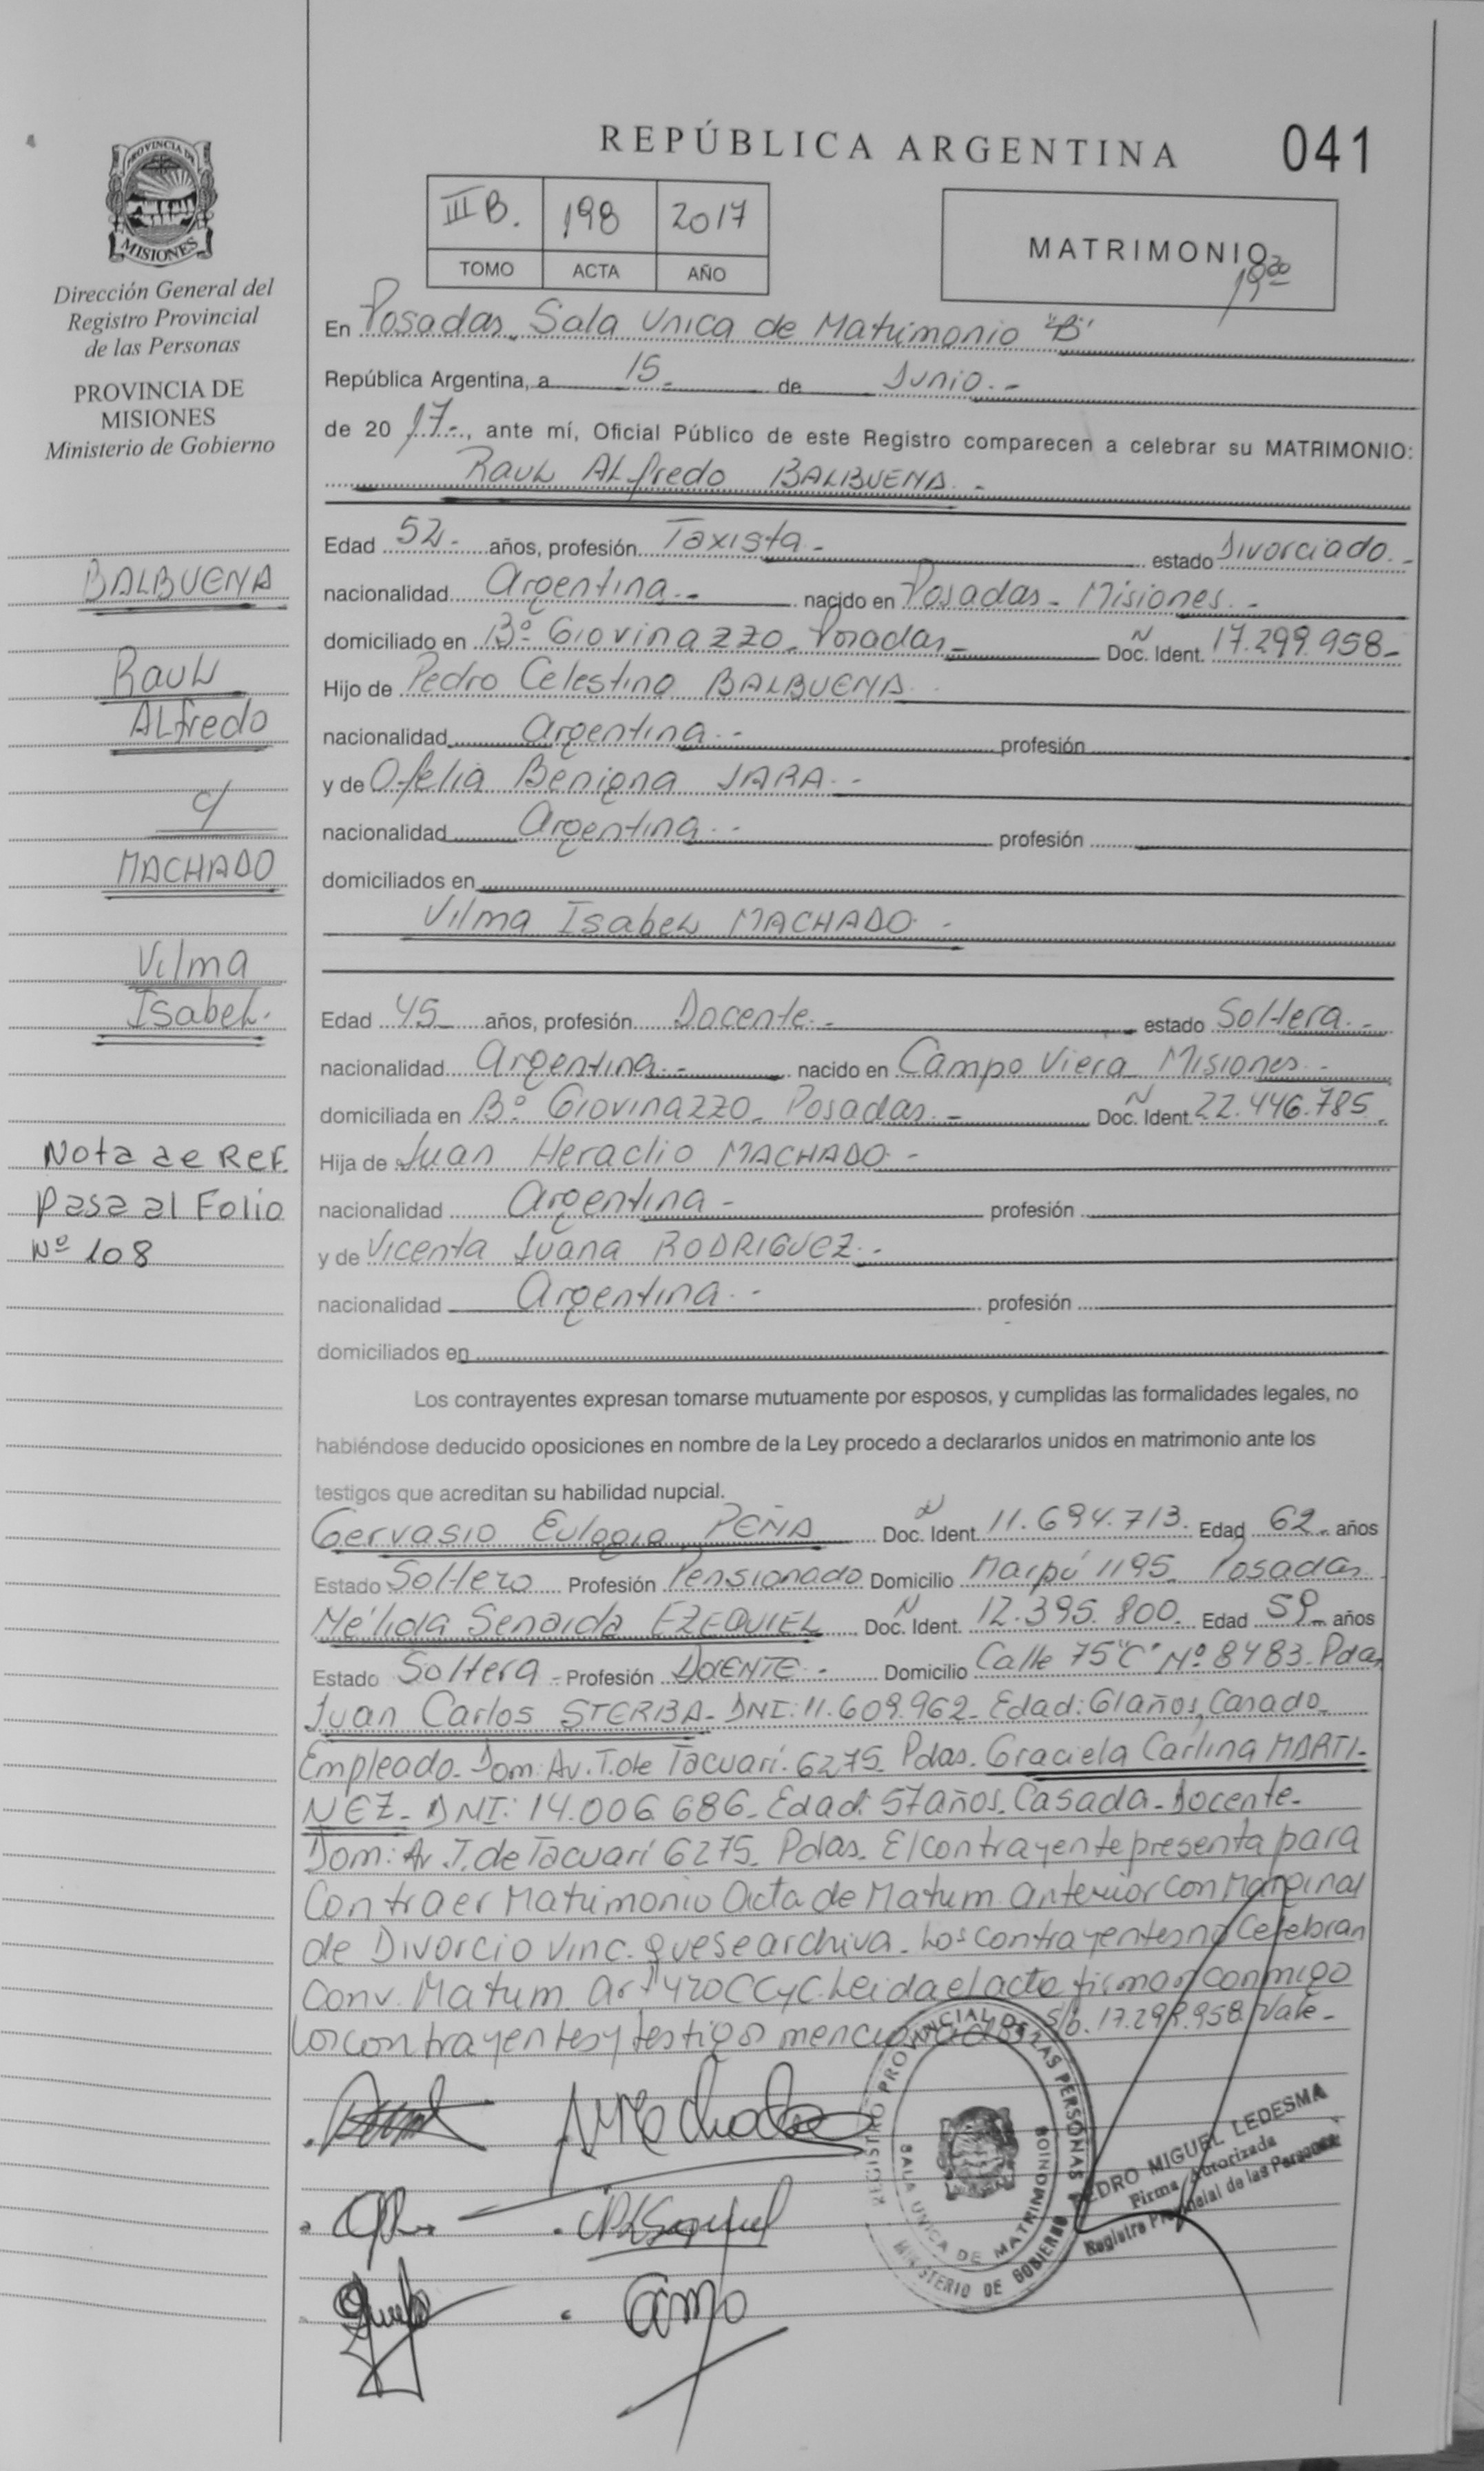 REPÚBLICA ARGENTINA
041
PROVINCIA DE
MISIONES
Dirección General del
Registro Provincial
de las Personas
PROVINCIA DE
MISIONES
Ministerio de Gobierno
III B. 198 2017
TOMO ACTA AÑO
MATRIMONIO
19:30
En Posadas Sala Unica de Matrimonio "B"
República Argentina, a 15 de Junio.-
de 2017-, ante mí, Oficial Público de este Registro comparecen a celebrar su MATRIMONIO:
Raul Alfredo BALBUENA.-
Edad 52- años, profesión Taxista.- estado Divorciado.-
nacionalidad Argentina.- nacido en Posadas - Misiones.-
domiciliado en Bº Giovinazzo - Posadas.- Doc. N Ident. 17.299.958-
Hijo de Pedro Celestino BALBUENA.
nacionalidad Argentina.- profesión
y de Ofelia Benigna JARA.-
nacionalidad Argentina.- profesión
domiciliados en
Vilma Isabel MACHADO.-
Edad 45 años, profesión Docente.- estado Soltera.-
nacionalidad Argentina.- nacido en Campo Viera Misiones.-
domiciliada en Bº Giovinazzo - Posadas.- Doc. N Ident. 22.446.785.
Hija de Juan Heraclio MACHADO.-
nacionalidad Argentina.- profesión
y de Vicenta Juana RODRIGUEZ.-
nacionalidad Argentina.- profesión
domiciliados en
Los contrayentes expresan tomarse mutuamente por esposos, y cumplidas las formalidades legales, no
habiéndose deducido oposiciones en nombre de la Ley procedo a declararlos unidos en matrimonio ante los
testigos que acreditan su habilidad nupcial.
Gervasio Eulogio PEÑA Doc. N Ident. 11.694.713. Edad 62- años
Estado Soltero Profesión Pensionado Domicilio Maipú 1195 Posadas
Mélida Senaida EZEQUIEL Doc. N Ident. 12.395.800. Edad 59- años
Estado Soltera - Profesión DOCENTE.- Domicilio Calle 75"C" Nº 8483- Pdas
Juan Carlos STERBA- DNI: 11.609.962- Edad: 61 años, Casado-
Empleado- Dom: Av. T. de Tacuarí. 6275- Pdas. Graciela Carlina MARTI-
NEZ- DNI: 14.006.686- Edad: 57 años. Casada- Docente-
Dom: Av. T. de Tacuarí 6275- Pdas. El contrayente presenta para
Contraer Matrimonio Acta de Matrim. anterior con Marginal
de Divorcio Vinc. que se archiva. Los contrayentes no Celebran
Conv. Matrim. Art 420 CCyC. Leida el acta firman conmigo
los contrayentes y testigos mencionados S/b. 17.299.958. Vale-
BALBUENA
Raul
Alfredo
c/
MACHADO
Vilma
Isabel.
Nota de Ref.
Pasa al Folio
Nº 108
REGISTRO PROVINCIAL DE LAS PERSONAS
SALA UNICA DE MATRIMONIOS
MINISTERIO DE GOBIERNO
PEDRO MIGUEL LEDESMA
Firma Autorizada
Registro Provincial de las Personas